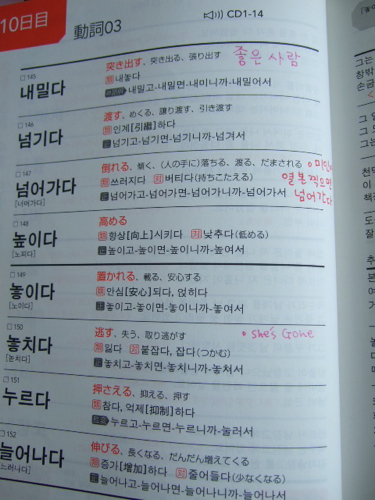 10日目
動詞03
CD1-14
좋은 사람
□ 145
내밀다
突き出す、突き出る、張り出す
내놓다
내밀고-내밀면-내미니까-내밀어서
□ 146
넘기다
渡す、めくる、譲り渡す、引き渡す
인계[引継]하다
넘기고-넘기면-넘기니까-넘겨서
□ 147
넘어가다
[너머가다]
倒れる、傾く、(人の手に)落ちる、渡る、だまされる
쓰러지다 버티다(持ちこたえる)
넘어가고-넘어가면-넘어가니까-넘어가서
열 번 찍으면
넘어가다
□ 148
높이다
[노피다]
高める
향상[向上]시키다 낮추다(低める)
높이고-높이면-높이니까-높여서
□ 149
놓이다
[노이다]
置かれる、載る、安心する
안심[安心]되다, 얹히다
놓이고-놓이면-놓이니까-놓여서
□ 150
놓치다
[녿치다]
逃す、失う、取り逃がす
잃다 붙잡다, 잡다(つかむ)
놓치고-놓치면-놓치니까-놓쳐서
she's Gone
□ 151
누르다
押さえる、抑える、押す
참다, 억제[抑制]하다
누르고-누르면-누르니까-눌러서
□ 152
늘어나다
[느러나다]
伸びる、長くなる、だんだん増えてくる
증가[増加]하다 줄어들다(少なくなる)
늘어나고-늘어나면-늘어나니까-늘어나서